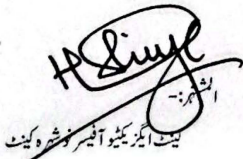 المشتہر:-
کینٹ ایگزیکٹیو آفیسر نوشہرہ کینٹ